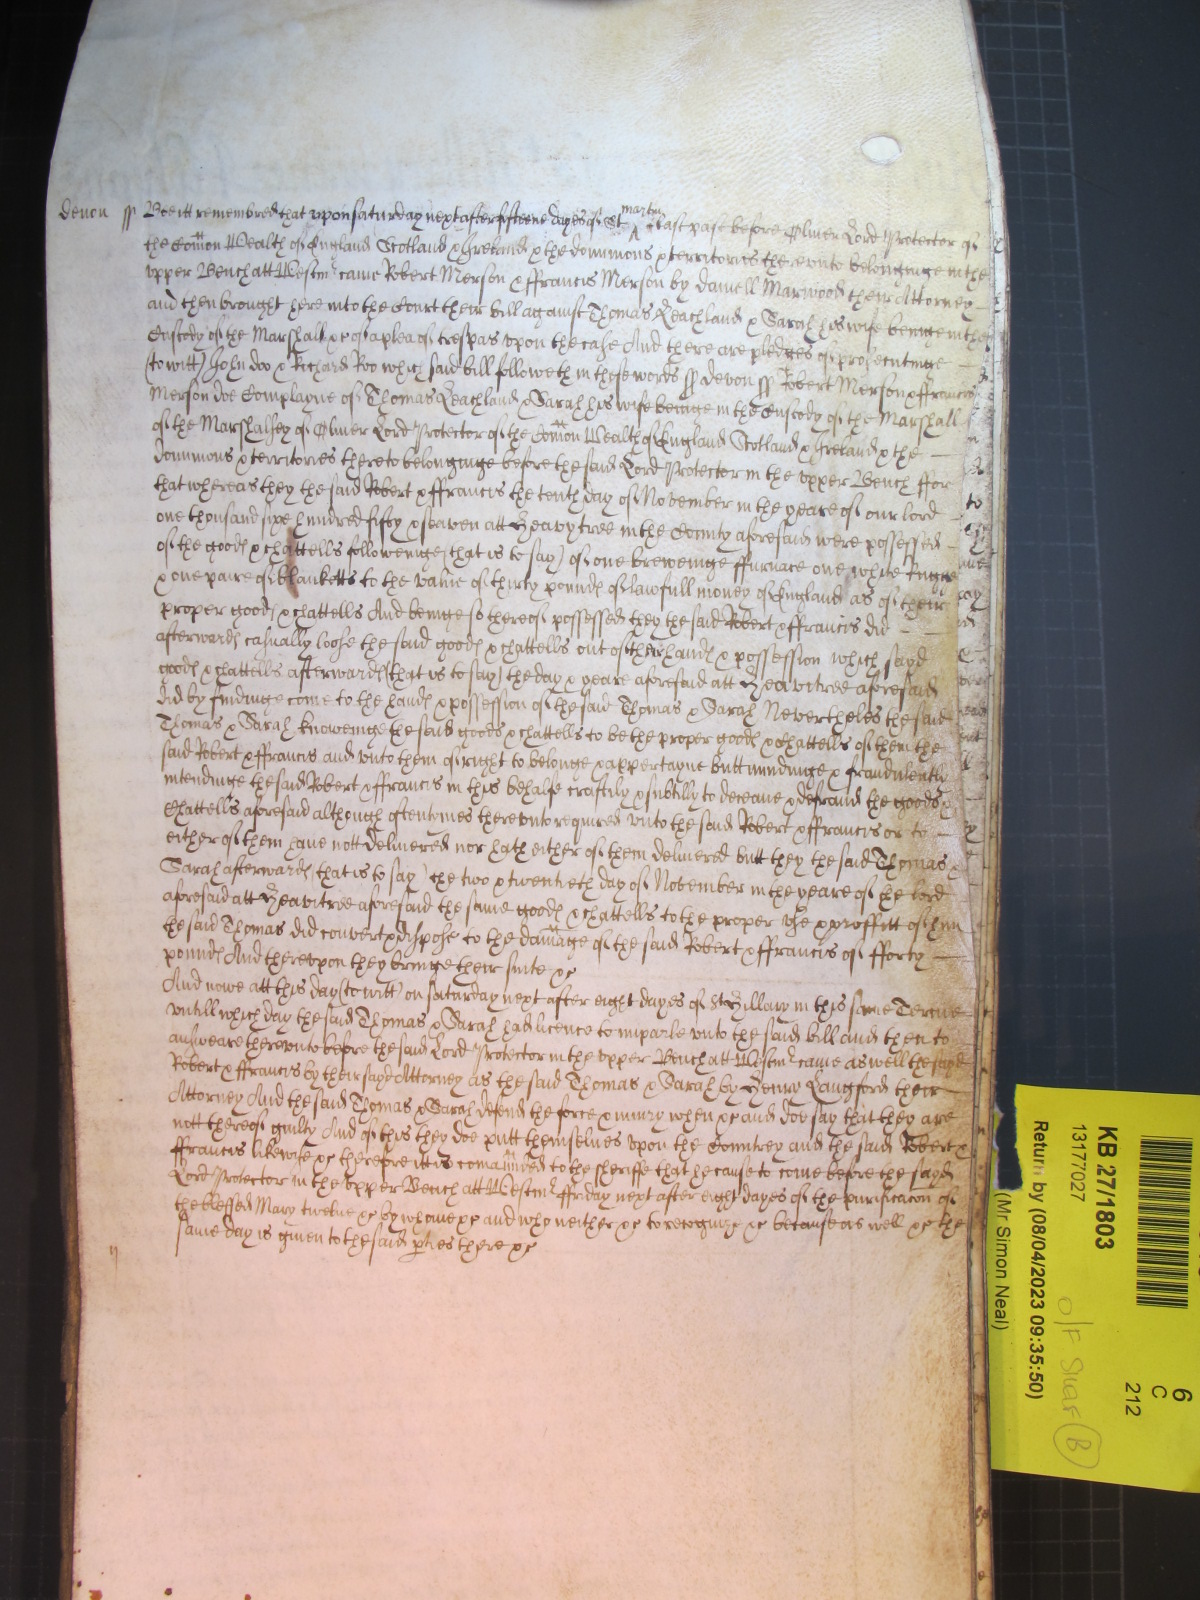 devon ss Bee itt remembred that vpon Saturday next after fifteene dayes of St martin last past before Oliver Lord Protector of
the Comon Wealth of England Scotland & Ireland & the dominions & territories therevnto belonginge in the
vpper Bench att Westmr came Robert Merson & ffrancis Merson by Daniell Marwood their Attorney
and then brought here into the Court their bill against Thomas Leachland & Sarah his wife beinge in the
Custody of the Marshall &c of a plea of trespas vpon the case And there are pledges of prosecutinge
(to witt) John doo & Richard Roo which said bill followeth in these words ss devon ss Robert Merson & ffrancis
Merson doe Complayne of Thomas Leachland & Sarah his wife beinge in the Custody of the Marshall
of the Marshalsey of Oliver Lord Protector of the Comon Wealth of England Scotland & Ireland & the
dominions & territories thereto belonginge before the said Lord Protector in the vpper Bench ffor
that whereas they the said Robert & ffrancis the tenth day of November in the yeare of our lord
one thousand sixe hundred fifty & seaven att Heavytree in the County aforesaid were possessed
of the goods & chattells followeinge (that is to say) of one breweinge ffurnace one white Rugge
& one paire of blanketts to the value of thirty pounds of lawfull money of England as of their
proper goods & chattells And beinge so thereof possessed they the said Robert & ffrancis did
afterwards casually loose the said goods & chattells out of their hands & possession which sayd
goods & chattells afterwards (that is to say) the day & yeare aforesaid att Heavitree aforesaid
did by findinge come to the hands & possession of the said Thomas & Sarah Neverthelesse the said
Thomas & Sarah knoweinge the said goods & chattells to be the proper goods & chattells of them the
said Robert & ffrancis and vnto them of right to belonge & appertayne butt mindinge & fraudulently
intendinge the said Robert & ffrancis in this behalfe craftily & subtilly to deceave & defraud the goods &
Chattells aforesaid although oftentimes therevnto required vnto the said Robert & ffrancis or to
either of them have nott delivered nor hath either of them delivered butt they the said Thomas &
Sarah afterwards (that is to say) the two & twentieth day of November in the yeare of the lord
aforesaid att Heavitree aforesaid the same goods & chattells to the proper vse & proffitt of him
the said Thomas did convert & dispose to the damage of the said Robert & ffrancis of fforty
pounds And therevpon they bringe their suite &c
And nowe att this day (to witt) on Saturday next after eight dayes of St Hillary in this same Terme
vntill which day the said Thomas & Sarah had licence to imparle vnto the said bill and then to
answeare therevnto before the said Lord Protector in the vpper Bench att Westmr came as well the sayd
Robert & ffrancis by their sayd Attorney as the said Thomas & Sarah by Henry Langford their
Attorney And the said Thomas & Sarah defend the force & iniury when &c and doe say that they are
nott thereof guilty And of this they doe putt themselves vpon the Countrey and the said Robert &
ffrancis likewise &c therefore itt is comaunded to the Sheriffe that he cause to come before the sayd
Lord Protector in the vpper Bench att Westmr ffriday next after eight dayes of the purificacon of
the blessed Mary twelve &c by whome &c and who neither &c to recognize &c because as well &c the
same day is given to the said pties there &c
KB 27/1803
13177027
Return by (08/04/2023 09:35:50)
(Mr Simon Neal)
6
C
212
O/F Shelf B